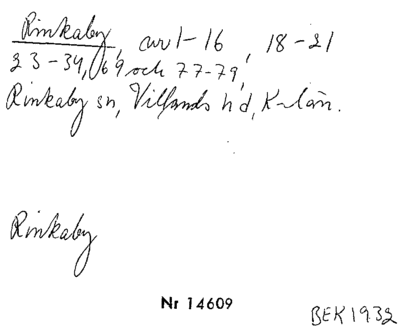 Rinkaby, avr 1-16, 18-21
23-34, 69 och 77-79,
Rinkaby sn, Villands hd, K-län.
Rinkaby
Nr 14609
BEK 1932